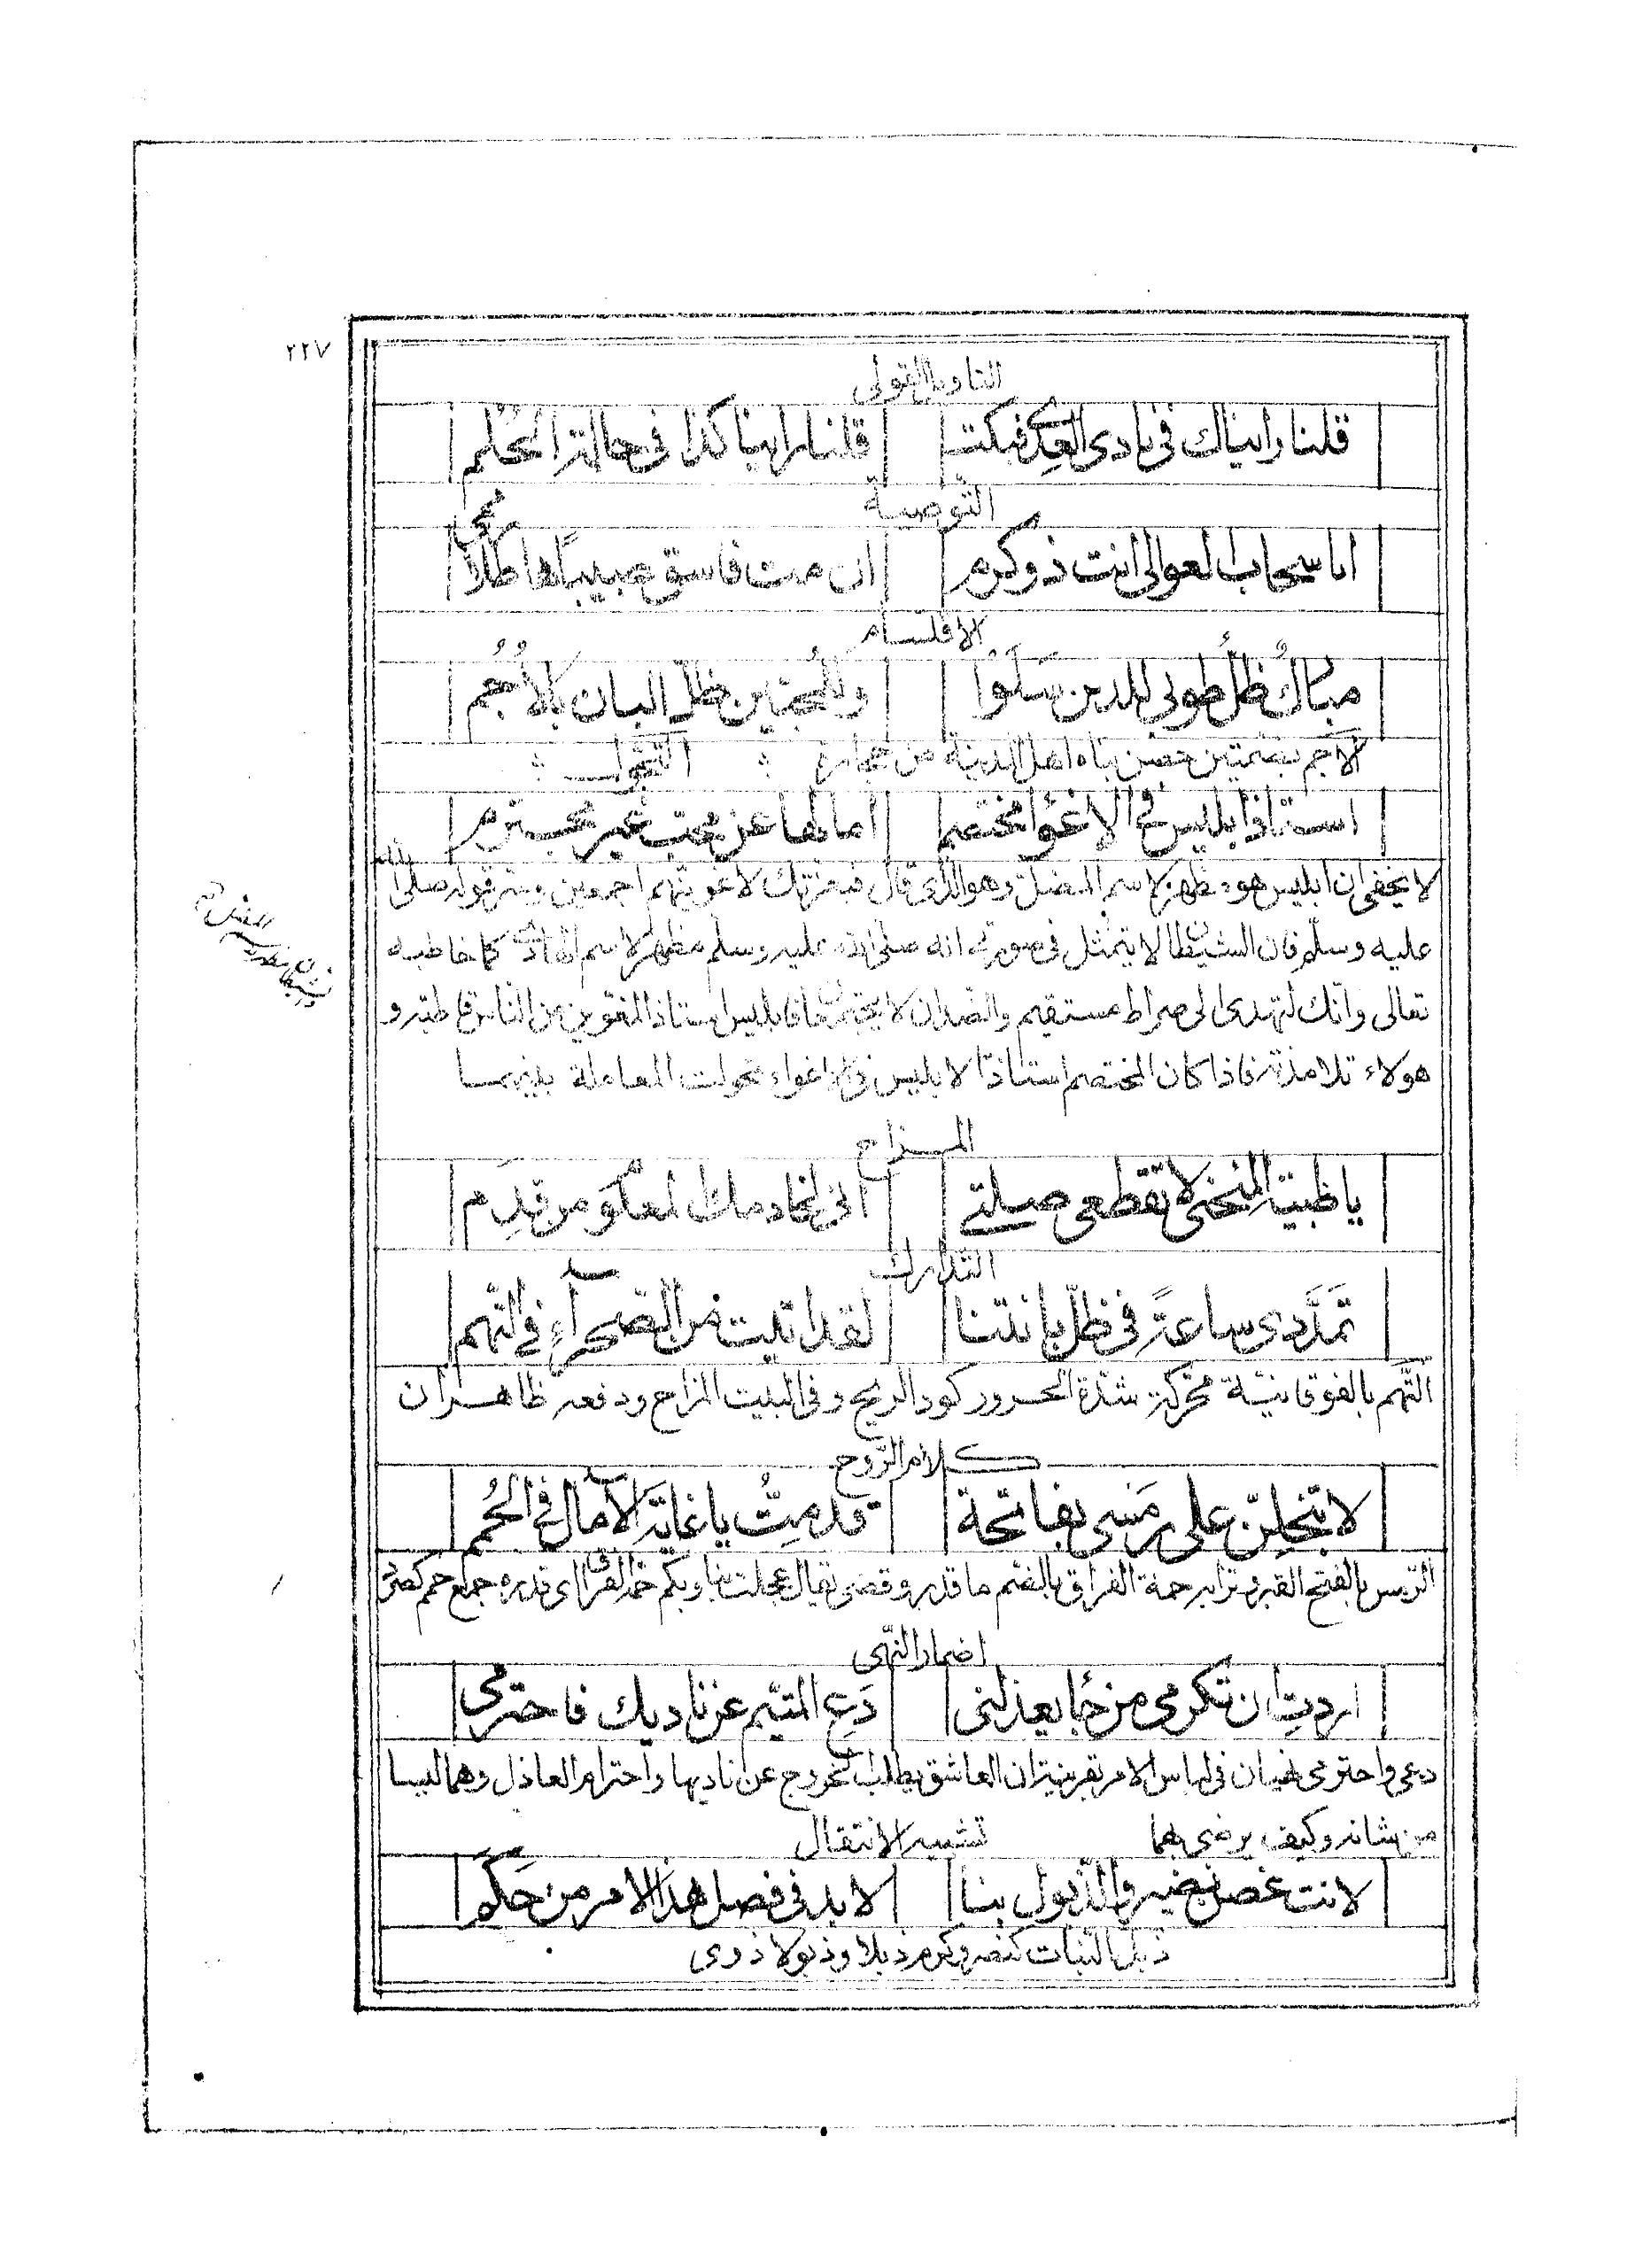 ٢٢٧
التاويل القولى
قلنا رايناك فى نادى العدى فبكت قلنا راينا كذا فى حالة الحُلُم
التوصية
ايا سحاب العوالى انت ذو كرم ان مت فاسق صبيبًا هاطلًا رممى
الاقسام
مباركٌ ظلُّ طوبى للذين سَلَوا وللمُحبّين ظلّ البان بالأُجُم
الاجم بضمتين حصن بناه اهل المدينة من حجارة التحول
استاذ ابليس فى الاغواء مختصم امالها عن محب غير مجترم
لا يخفى ان ابليس هو مظهر لاسم المضل وهو الذى قال فبعزتك لاغوينهم اجمعين وسر قوله صلى الله
عليه وسلم فان الشيطان لا يتمثل فى صورتى انه صلى الله عليه وسلم مظهر لاسم الهادى كما خاطبه
تعالى وانك لتهدى الى صراط مستقيم والضدان لا يجتمعان فابليس استاذ المغوين من الناس قاطبة و
هولاء تلامذته فاذا كان المختصم استاذا لابليس فى الاغواء تحولت المعاملة بينهما
المزاح
يا ظبية المنحنى لا تقطعى صلتى انى لخادمك المعلوم من قِدَم
التدارك
تمدَّدى ساعةً فى ظلّ بانتنا لقد اتيت من الصحرآءِ فى التهم
التَّهَم بالفوقانيّة محرّكة شدّة الحرور كود الريح وفى البيت المزاح ودفعه ظاهران
كلام الرّوح
لا تبخلِنّ على رَمَسى بفاتحة قد مِتُّ يا غاية الآمال فى الحُمم
الرمس بالفتح القبر وترابه حمة الفراق بالضم ما قدر وقضى يقال عجلت بنا وبكم حمة الفراق اى قدره جمع حمم كصرد
اضمار النّهى
اردتِ ان تكرمى من جُا يعذلنى دَعِى المتيّم عن ناديك فاحترمى
دعى واحترمى نهيان فى لباس الامر بقرينة ان العاشق يطلب الخروج عن ناديها واحترام العاذل وهما ليسا
من شانه وكيف يرضى بهما تشبيه الانتقال
لانت غصن نضير والذبول بنا لابد فى فصل هذا الامر من حَكَم
ذبل النبات كنصر وكرم ذبلا وذبولا ذوى